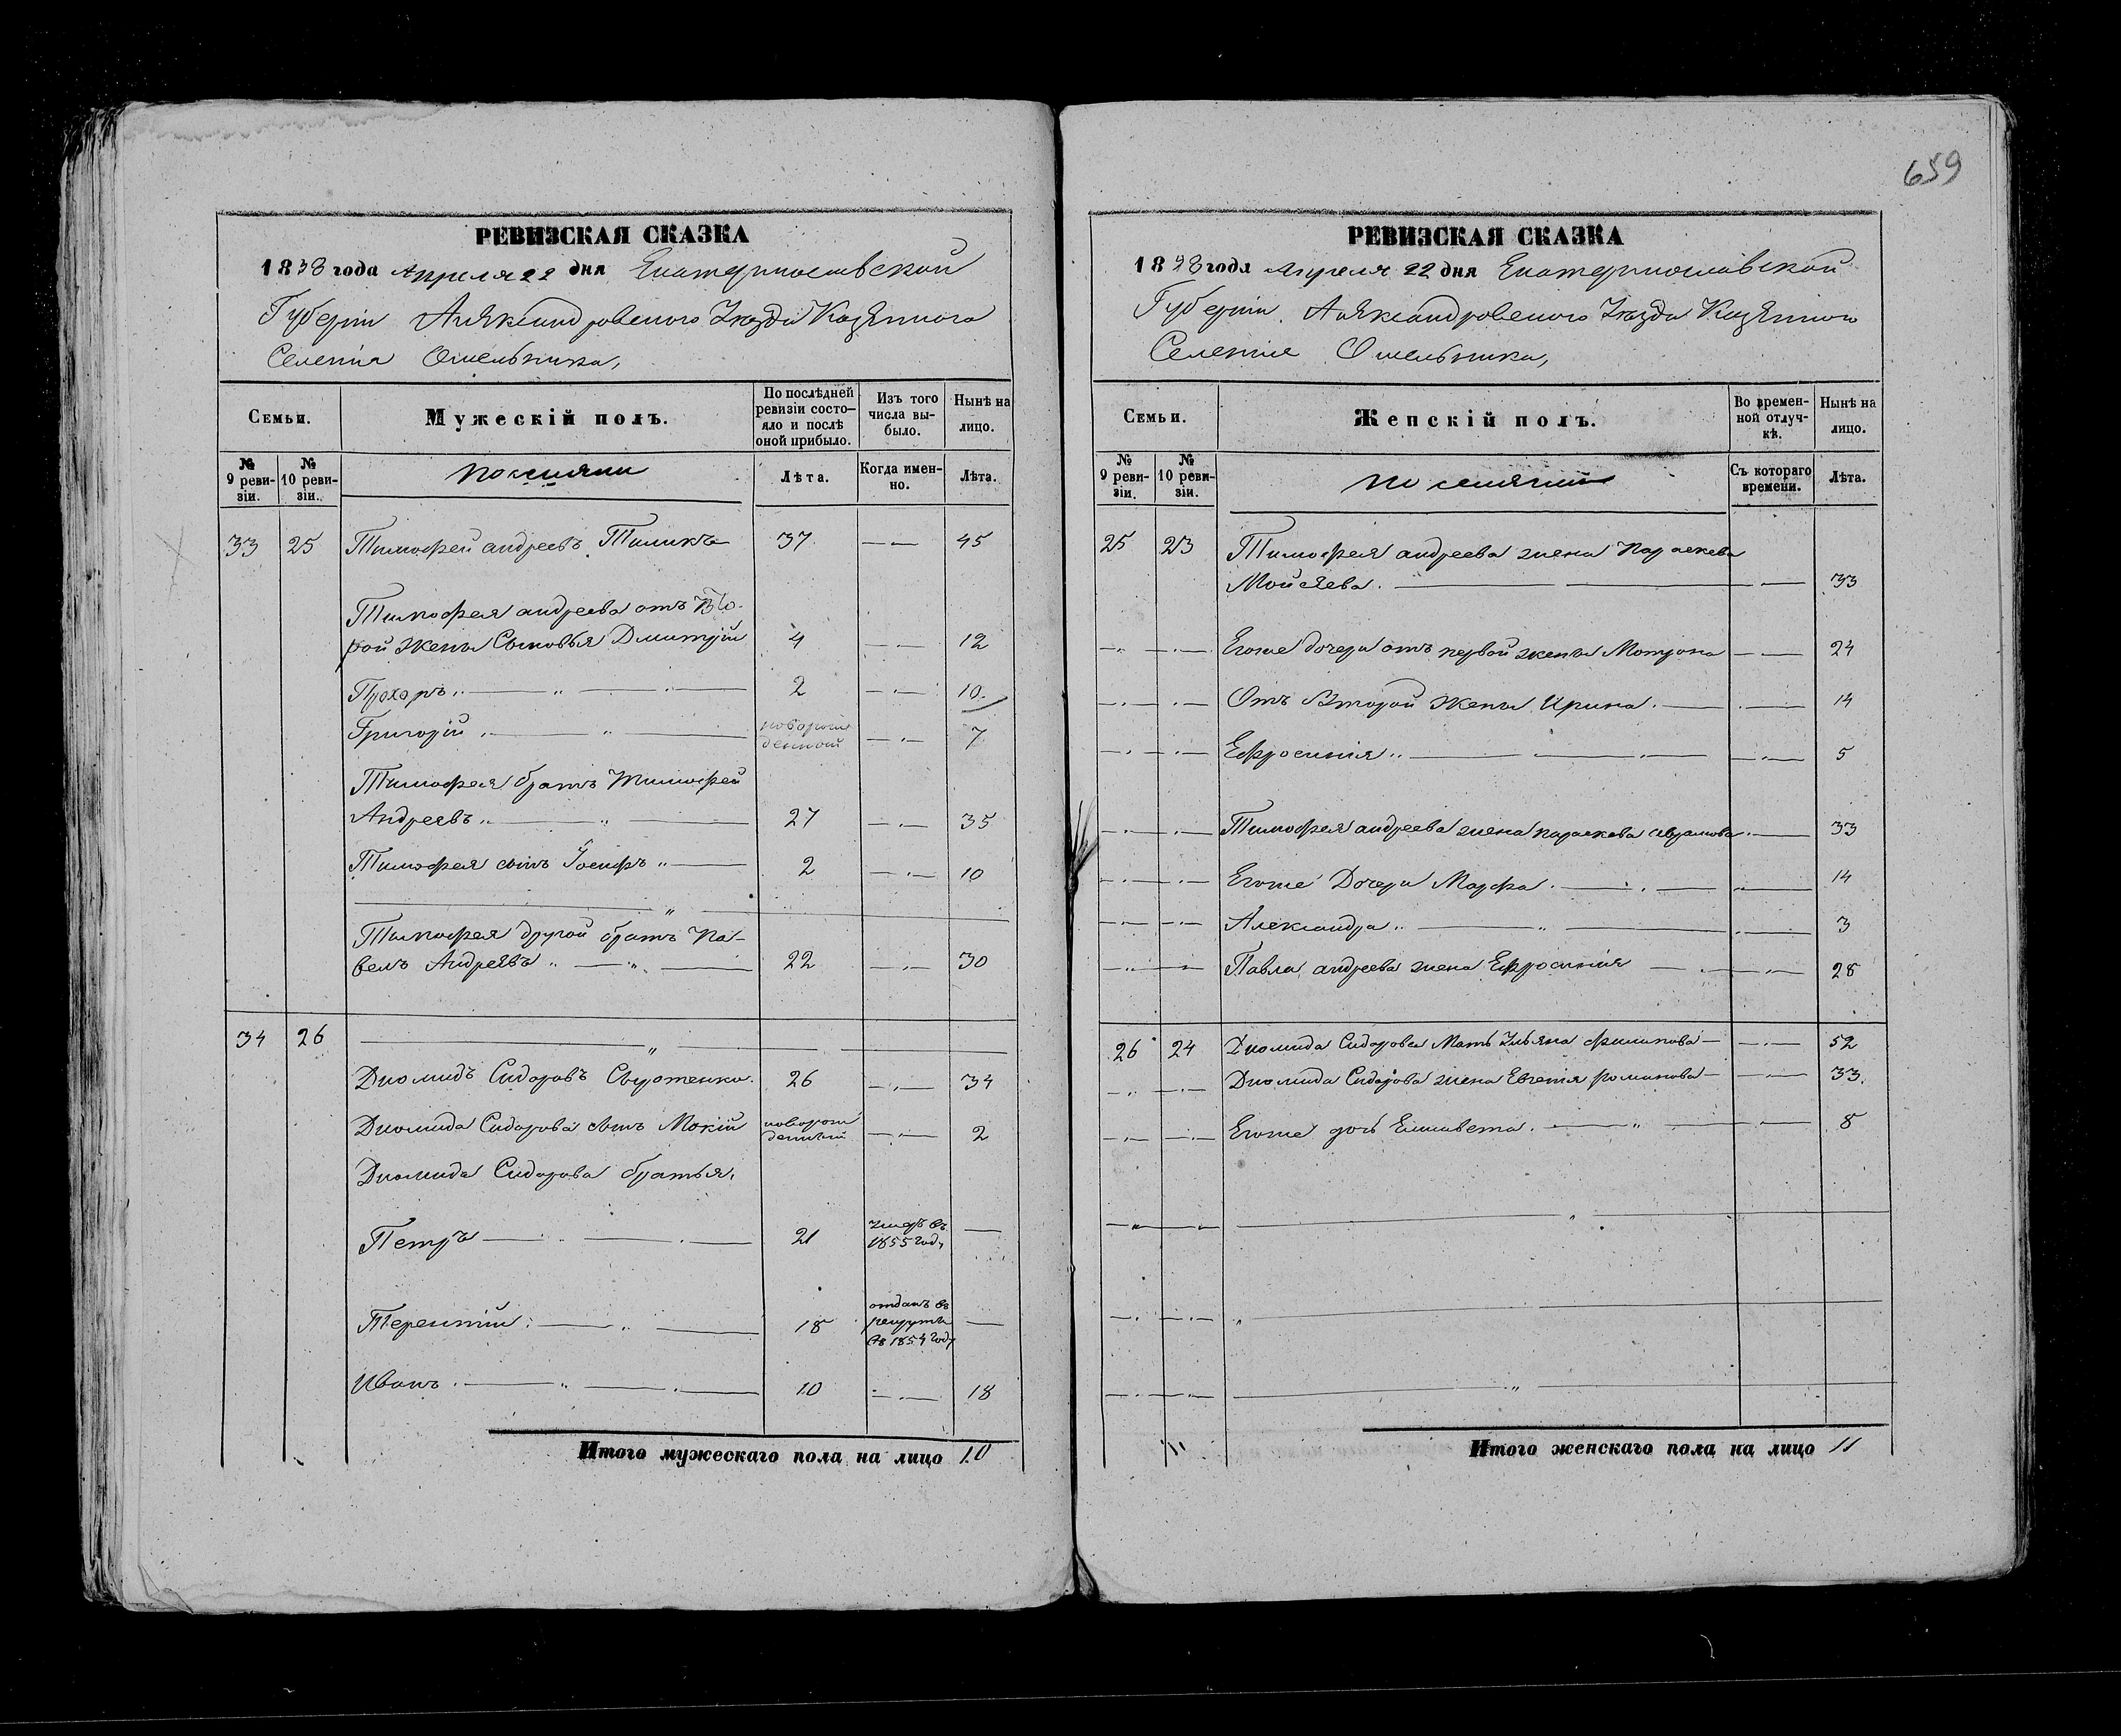 659
РЕВИЗСКАЯ СКАЗКА
1858 года Апреля 22 дня Екатеринославской
Губерніи Александровского Уезда Казенного
Селенія Омельника,
Семьи.
Мужескій полъ.
По послѣдней ревизіи состо-
яло и послѣ оной прибыло.
Изъ того числа вы-
было.
Нынѣ на лицо.
№ 9 реви-
зіи.
№ 10 реви-
зіи.
поселяни
Лѣта.
Когда имен-
но.
Лѣта.
33 25 Тимофей андреевъ 37 45
Тимофея андреева отъ Вто-
рой жены Сыновья Дмитрій 4 12
Прохоръ 2 10
Григорій новорож
денной 7
Тимофея братъ тимофей
Андреевъ 27 35
Тимофея сынъ Іосифъ 2 10
Тимофея другой братъ Па-
велъ Андреевъ 22 30
34 26
Диомидъ Сидоровъ 26 34
Диомида Сидорова сынъ Мокій новорож
денный 2
Диомида Сидорова братья,
Петръ 21 умеръ въ
1855 году
Терентій 18 отданъ въ
рекруты
въ 1854 году
Иванъ 10 18
Итого мужескаго пола на лицо 10
РЕВИЗСКАЯ СКАЗКА
1858 года Апреля 22 дня Екатеринославской
Губерніи Александровского Уезда Казенного
Селеніе Омельника,
Семьи.
Женскій полъ.
Во времен-
ной отлуч-
кѣ.
Нынѣ на лицо.
№ 9 реви-
зіи.
№ 10 реви-
зіи.
по
Съ котораго времени.
Лѣта.
25 23 Тимофея андреева жена Параскева
Мойсеева. 33
Егоже дочери отъ первой жены Мотрона 24
Отъ Второй Жены Ирина. 14
Ефросинія 5
Тимофея андреева жена параскева 33
Егоже Дочери Марфа. 14
Александра 3
Павла андреева жена Ефросинія 28
26 24 Диомида Сидорова Мать Ульяна филипова 52
Диомида Сидорова жена Евгенія романова 33
Егоже дочь Елисавета. 8
Итого женскаго пола на лицо 11